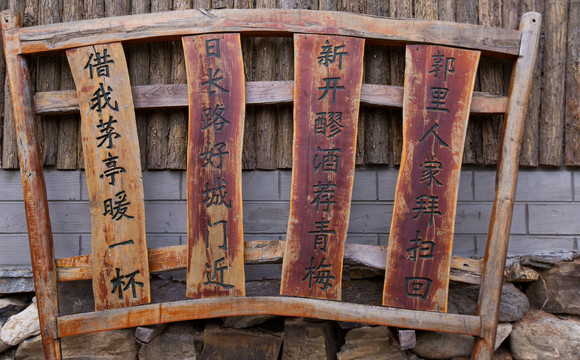 郭里人家拜扫回
新开醪酒荐青梅
日长路好城门近
借我茅亭暖一杯